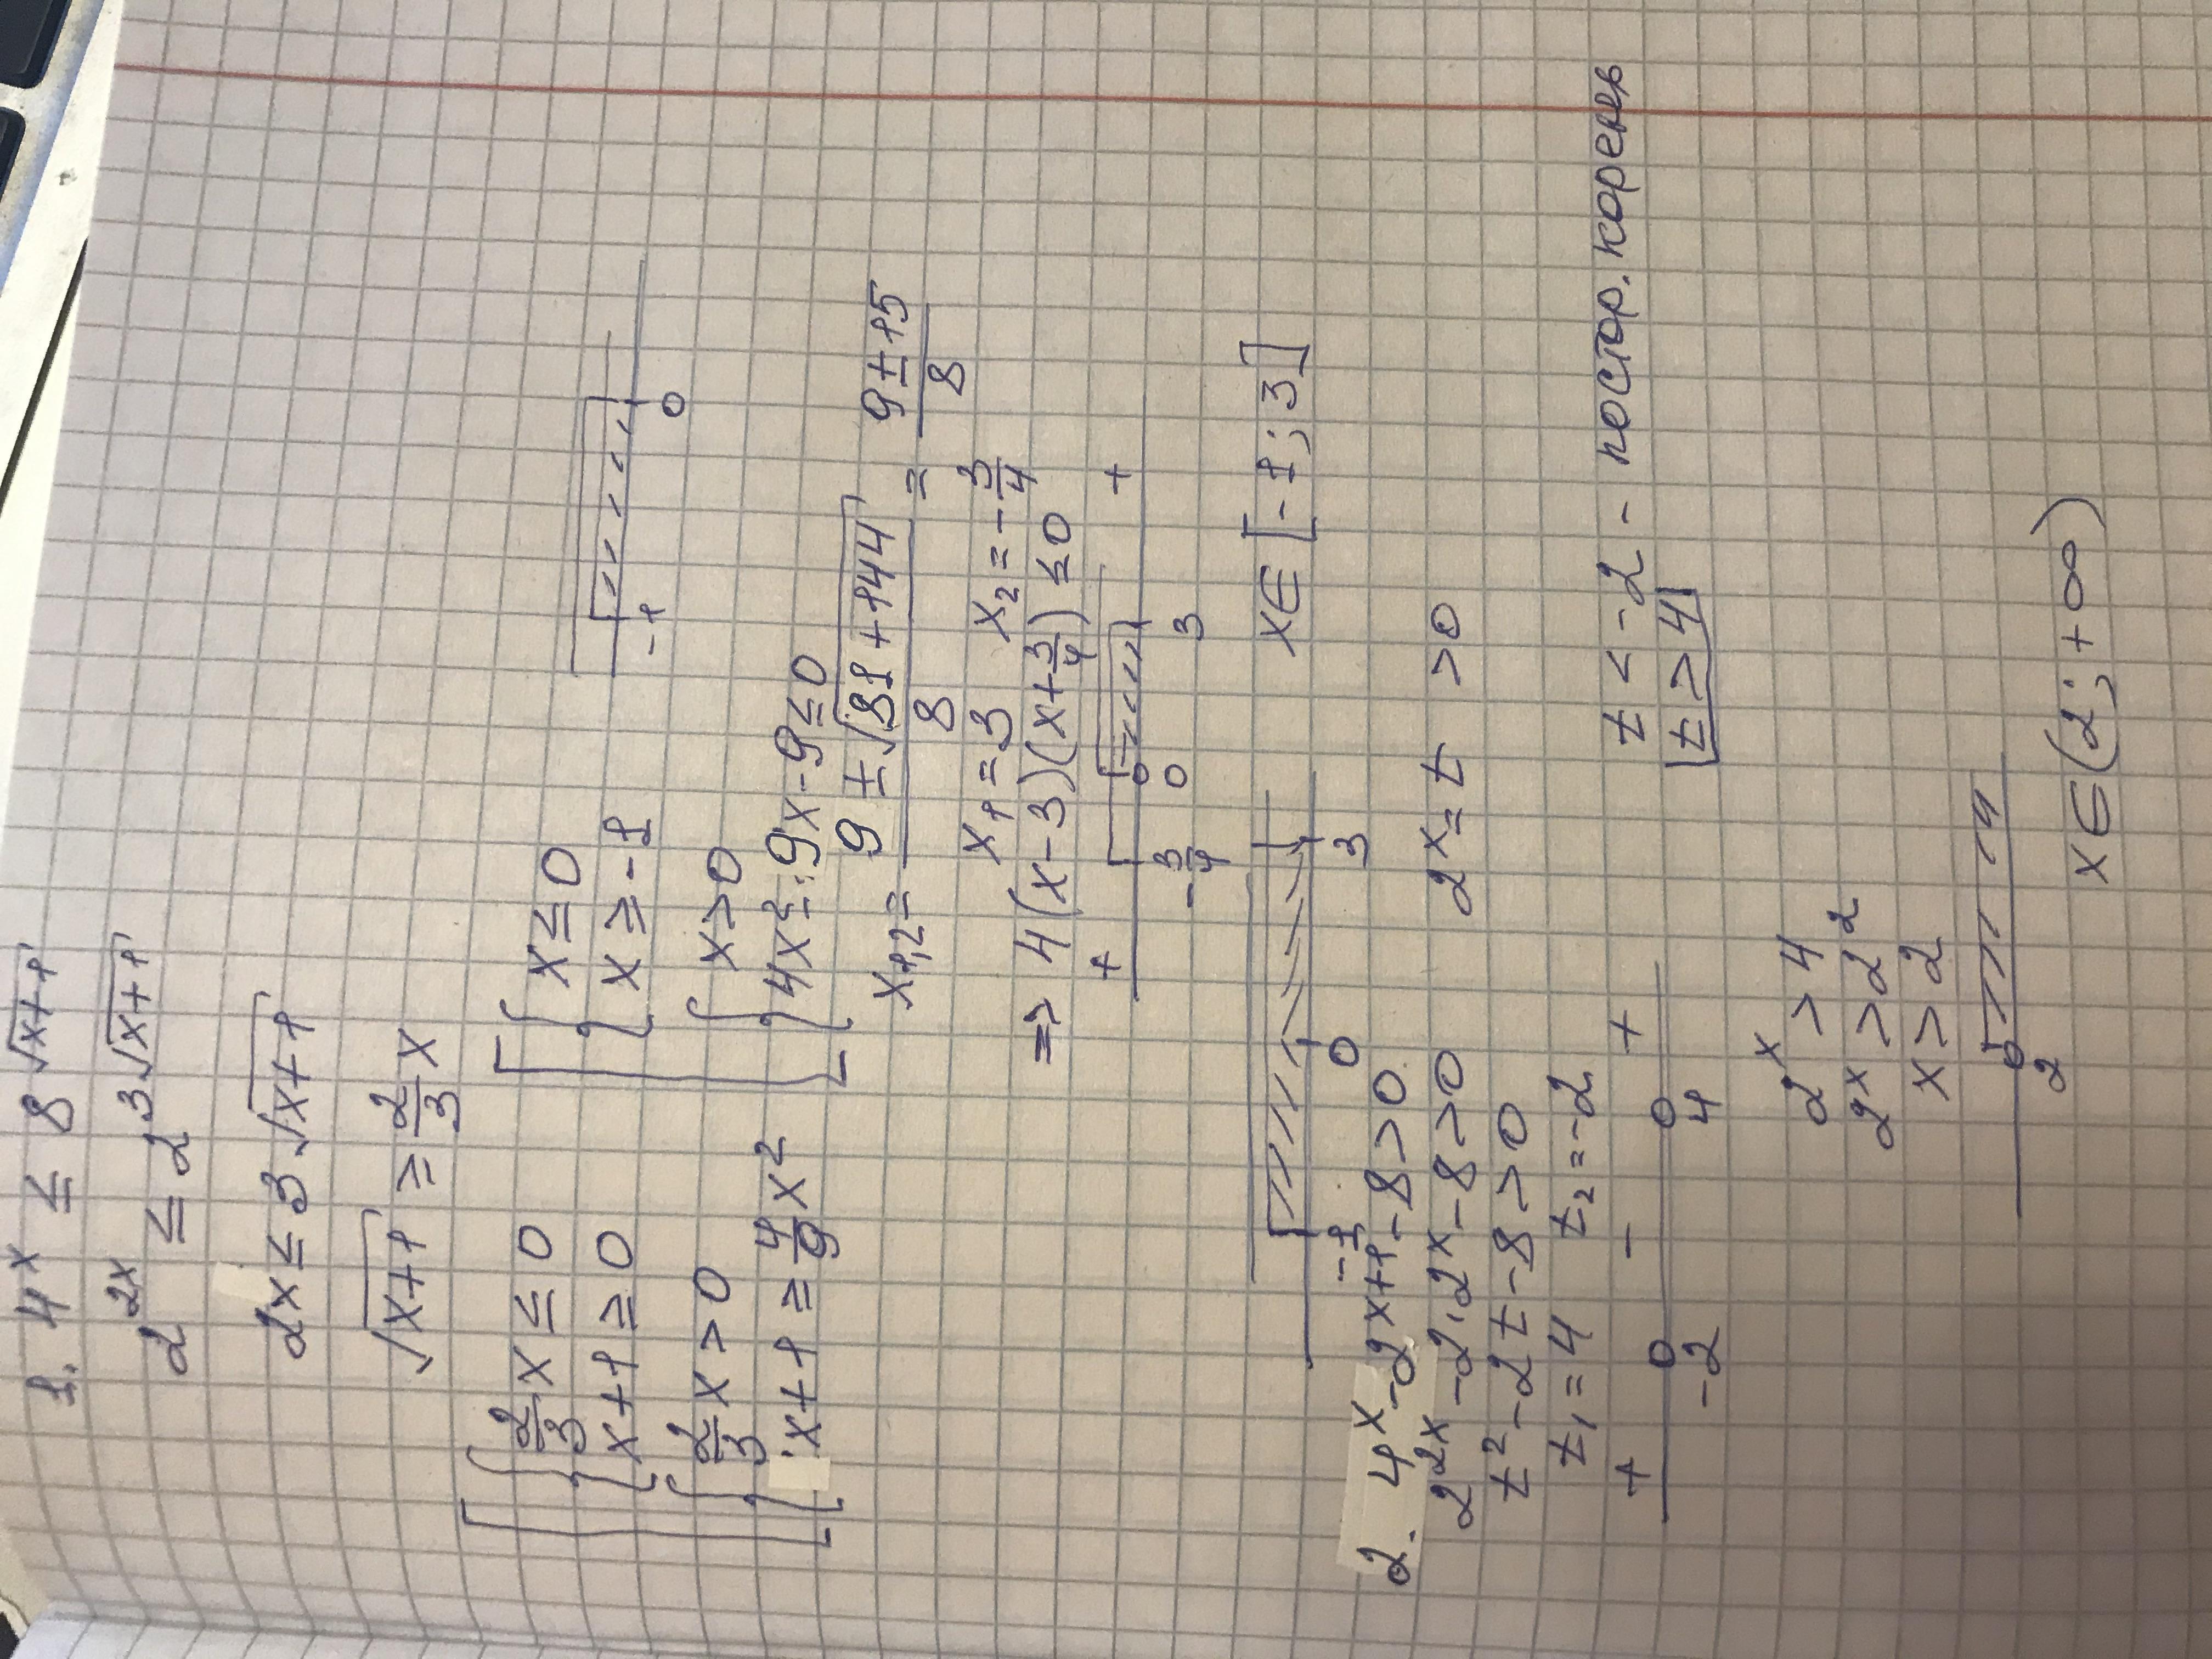 1. 4^x ≤ 8^√(x+1)
2^2x ≤ 2^3√(x+1)
2x ≤ 3√(x+1)
√(x+1) ≥ 2/3 x
[ { 2/3 x ≤ 0 [ { x ≤ 0
{ x+1 ≥ 0 { x ≥ -1 -1 0
{ 2/3 x > 0 { x > 0
{ x+1 ≥ 4/9 x² { 4x² - 9x - 9 ≤ 0
x1,2 = (9 ± √(81+144))/8 = (9 ± 15)/8
x1 = 3 x2 = -3/4
=> 4(x-3)(x+3/4) ≤ 0
+ +
-3/4 0 3
-1 0 3 x ∈ [-1; 3]
2. 4^x - 2^x+1 - 8 > 0
2^2x - 2·2^x - 8 > 0 2^x = t > 0
t² - 2t - 8 > 0
t1 = 4 t2 = -2
+ - + t < -2 - постор. корень
-2 4 t > 4
2^x > 4
2^x > 2²
x > 2
2
x ∈ (2; +∞)